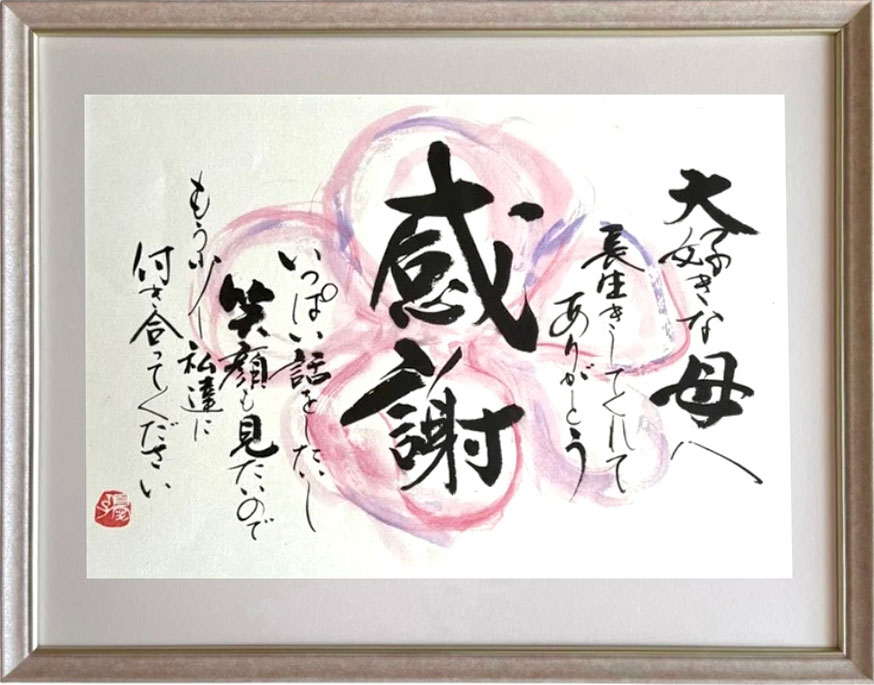 大好きな母へ
長生きしてくれて
ありがとう
感謝
いっぱい話をしたいし
笑顔も見たいので
もう少し私達に
付き合ってください